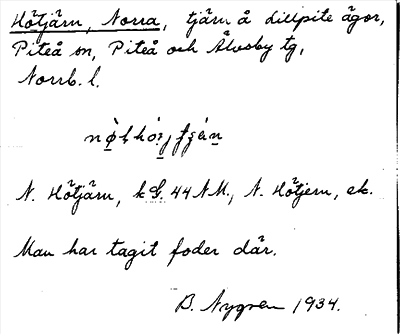 Hötjärn, Norra, tjärn å Lillpite ägor,
Piteå sn, Piteå och Älvsby tg,
Norrb. l.
N. Hötjärn, k 44 NM., N. Hötjern, ek.
Man har tagit foder där.
B. Nygren 1934.